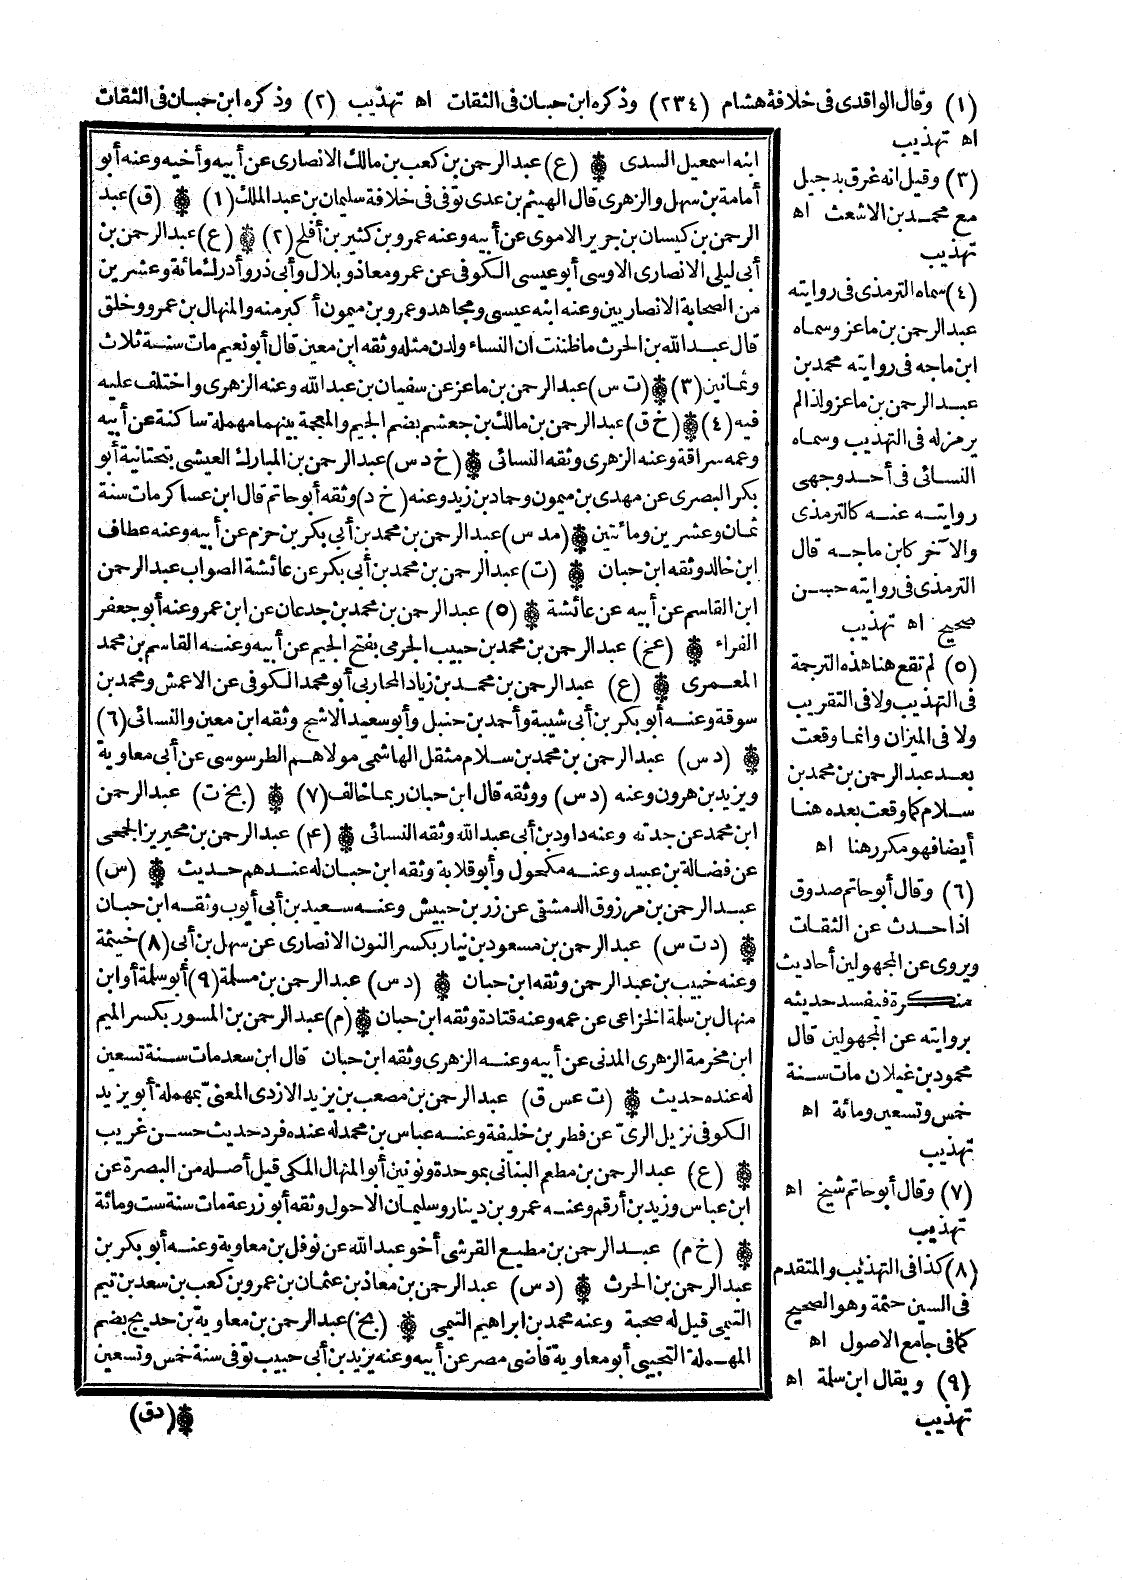 (١) وقال الواقدى فى خلافة هشام (٢٣٤) وذكره ابن حبان فى الثقات اه تهذيب (٢) وذكره ابن حبان فى الثقات
اه تهذيب
(٣) وقيل انه غرق بدجيل
مع محمد بن الاشعث اه
تهذيب
(٤) سماه الترمذى فى روايته
عبد الرحمن بن ماعز وسماه
ابن ماجه فى روايته محمد بن
عبد الرحمن بن ماعز ولذا لم
يرمز له فى التهذيب وسماه
النسائى فى أحد وجهى
روايته عنه كالترمذى
والآخر كابن ماجه قال
الترمذى فى روايته حسن
صحيح اه تهذيب
(٥) لم تقع هنا هذه الترجمة
فى التهذيب ولا فى التقريب
ولا فى الميزان وانما وقعت
بعد عبد الرحمن بن محمد بن
سلام كما وقعت بعده هنا
أيضا فهو مكرر هنا اه
(٦) وقال أبو حاتم صدوق
اذا حدث عن الثقات
ويروى عن المجهولين أحاديث
منكرة فيفسد حديثه
بروايته عن المجهولين قال
محمود بن غيلان مات سنة
خمس وتسعين ومائة اه
تهذيب
(٧) وقال أبو حاتم شيخ اه
تهذيب
(٨) كذا فى التهذيب والمتقدم
فى السين حثمة وهو الصحيح
كما فى جامع الاصول اه
(٩) ويقال ابن سلمة اه
تهذيب
ابنه اسمعيل السدى (ع) عبد الرحمن بن كعب بن مالك الانصارى عن أبيه وأخيه وعنه أبو
أمامة بن سهل والزهرى قال الهيثم بن عدى توفى فى خلافة سليمان بن عبد الملك (١) (ق) عبد
الرحمن بن كيسان بن جرير الاموى عن أبيه وعنه عمرو بن كثير بن أفلح (٢) (ع) عبد الرحمن بن
أبى ليلى الانصارى الاوسى أبو عيسى الكوفى عن عمر ومعاذ وبلال وأبى ذر وأدرك مائة وعشرين
من الصحابة الانصاريين وعنه ابنه عيسى ومجاهد وعمرو بن ميمون أكبر منه والمنهال بن عمرو وخلق
قال عبد الله بن الحرث ما ظننت ان النساء ولدن مثله وثقه ابن معين قال أبو نعيم مات سنة ثلاث
وثمانين (٣) (ت س) عبد الرحمن بن ماعز عن سفيان بن عبد الله وعنه الزهرى واختلف عليه
فيه (٤) (خ ق) عبد الرحمن بن مالك بن جعشم بضم الجيم والمعجمة بينهما مهملة ساكنة عن أبيه
وعمه سراقة وعنه الزهرى وثقه النسائى (خ د س) عبد الرحمن بن المبارك العيشى بتحتانية أبو
بكر البصرى عن مهدى بن ميمون وحماد بن زيد وعنه (خ د) وثقه أبو حاتم قال ابن عساكر مات سنة
ثمان وعشرين ومائتين (مد س) عبد الرحمن بن محمد بن أبى بكر بن حزم عن أبيه وعنه عطاف
ابن خالد وثقه ابن حبان (ت) عبد الرحمن بن محمد بن أبى بكر عن عائشة الصواب عبد الرحمن
ابن القاسم عن أبيه عن عائشة (٥) عبد الرحمن بن محمد بن جدعان عن ابن عمر وعنه أبو جعفر
الفراء (عخ) عبد الرحمن بن محمد بن حبيب الجرمى بفتح الجيم عن أبيه وعنه القاسم بن محمد
المعمرى (ع) عبد الرحمن بن محمد بن زياد المحاربى أبو محمد الكوفى عن الاعمش ومحمد بن
سوقة وعنه أبو بكر بن أبى شيبة وأحمد بن حنبل وأبو سعيد الاشج وثقه ابن معين والنسائى (٦)
(د س) عبد الرحمن بن محمد بن سلام مثقل الهاشمى مولاهم الطرسوسى عن أبى معاوية
ويزيد بن هرون وعنه (د س) ووثقه قال ابن حبان ربما خالف (٧) (بخ ت) عبد الرحمن
ابن محمد عن جدته وعنه داود بن أبى عبد الله وثقه النسائى (ع) عبد الرحمن بن محيريز الجمحى
عن فضالة بن عبيد وعنه مكحول وأبو قلابة وثقه ابن حبان له عندهم حديث (س)
عبد الرحمن بن مرزوق الدمشقى عن زر بن حبيش وعنه سعيد بن أبى أيوب وثقه ابن حبان
(د ت س) عبد الرحمن بن مسعود بن نيار بكسر النون الانصارى عن سهل بن أبى (٨) خيثمة
وعنه خبيب بن عبد الرحمن وثقه ابن حبان (د س) عبد الرحمن بن مسلمة (٩) أبو سلمة أو ابن
منهال بن سلمة الخزاعى عن عمه وعنه قتادة وثقه ابن حبان (م) عبد الرحمن بن المسور بكسر الميم
ابن مخرمة الزهرى المدنى عن أبيه وعنه الزهرى وثقه ابن حبان قال ابن سعد مات سنة تسعين
له عنده حديث (ت عس ق) عبد الرحمن بن مصعب بن يزيد الازدى المعنىّ بمهملة أبو يزيد
الكوفى نزيل الرىّ عن فطر بن خليفة وعنه عباس بن محمد له عنده فرد حديث حسن غريب
(ع) عبد الرحمن بن مطعم البنانى بموحدة ونونين أبو المنهال المكى قيل أصله من البصرة عن
ابن عباس وزيد بن أرقم وعنه عمرو بن دينار وسليمان الاحول وثقه أبو زرعة مات سنة ست ومائة
(خ م) عبد الرحمن بن مطيع القرشى أخو عبد الله عن نوفل بن معاوية وعنه أبو بكر بن
عبد الرحمن بن الحرث (د س) عبد الرحمن بن معاذ بن عثمان بن عمرو بن كعب بن سعد بن تيم
التيمى قيل له صحبة وعنه محمد بن ابراهيم التيمى (بخ) عبد الرحمن بن معاوية بن حديج بضم
المهملة التجيبى أبو معاوية قاضى مصر عن أبيه وعنه يزيد بن أبى حبيب توفى سنة خمس وتسعين
(دق)